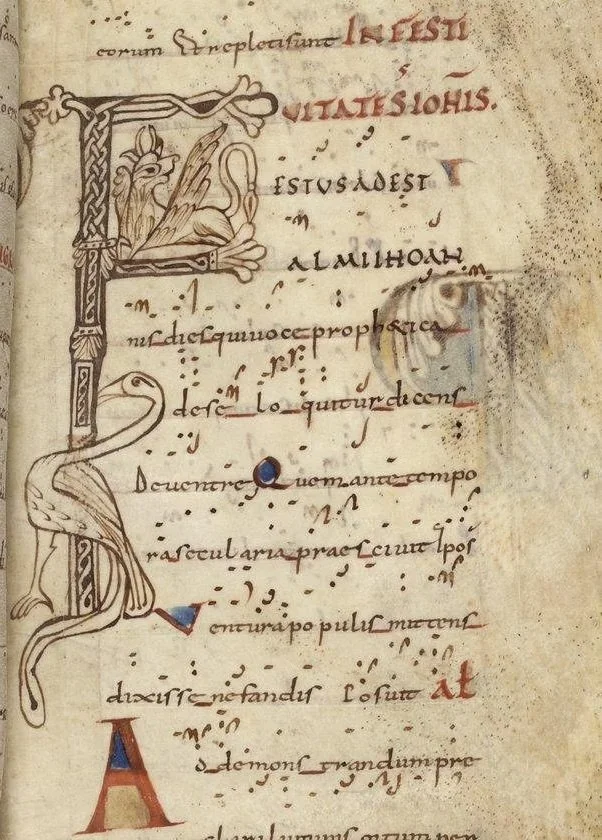 eorum Et repleti sunt IN FESTI
UITATE S IOHIS.
FESTUS ADEST
ALMI IHOAN
nis dies qui uoce prophetica
dese loquitur dicens
De uentre Quem ante tempo
ra secularia praesciuit Ipos
Ventura populis mittens
dixisse nefandis Posuit al
Ad demonstrandum pre